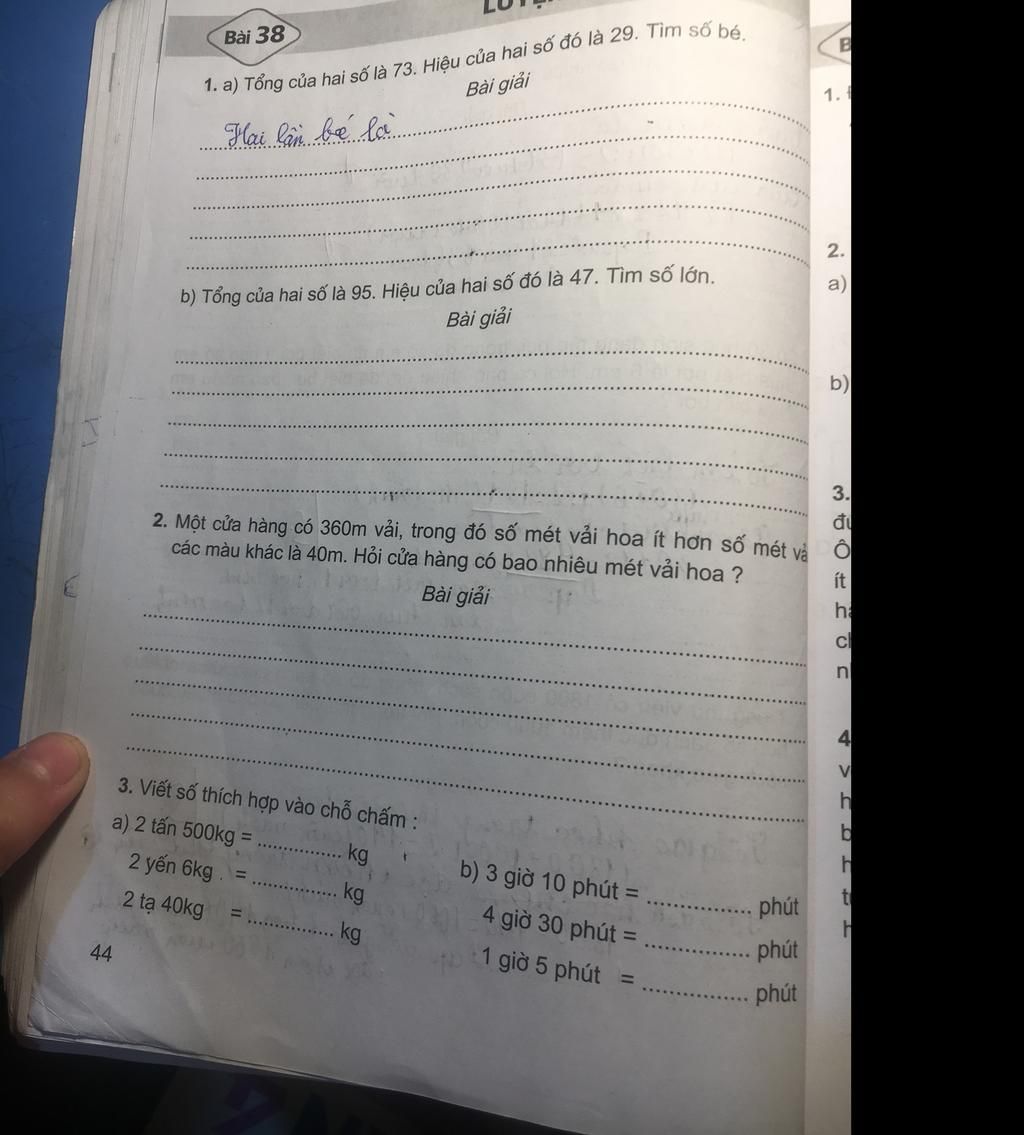 Bài 38
1. a) Tổng của hai số là 73. Hiệu của hai số đó là 29. Tìm số bé.
Bài giải
Hai lần bé là
b) Tổng của hai số là 95. Hiệu của hai số đó là 47. Tìm số lớn.
Bài giải
2. Một cửa hàng có 360m vải, trong đó số mét vải hoa ít hơn số mét vả
các màu khác là 40m. Hỏi cửa hàng có bao nhiêu mét vải hoa ?
Bài giải
3. Viết số thích hợp vào chỗ chấm :
a) 2 tấn 500kg = .............. kg
2 yến 6kg = .............. kg
2 tạ 40kg = .............. kg
b) 3 giờ 10 phút = ................ phút
4 giờ 30 phút = ................ phút
1 giờ 5 phút = ................ phút
44
1.
2.
a)
b)
3.
Ô
ít
4